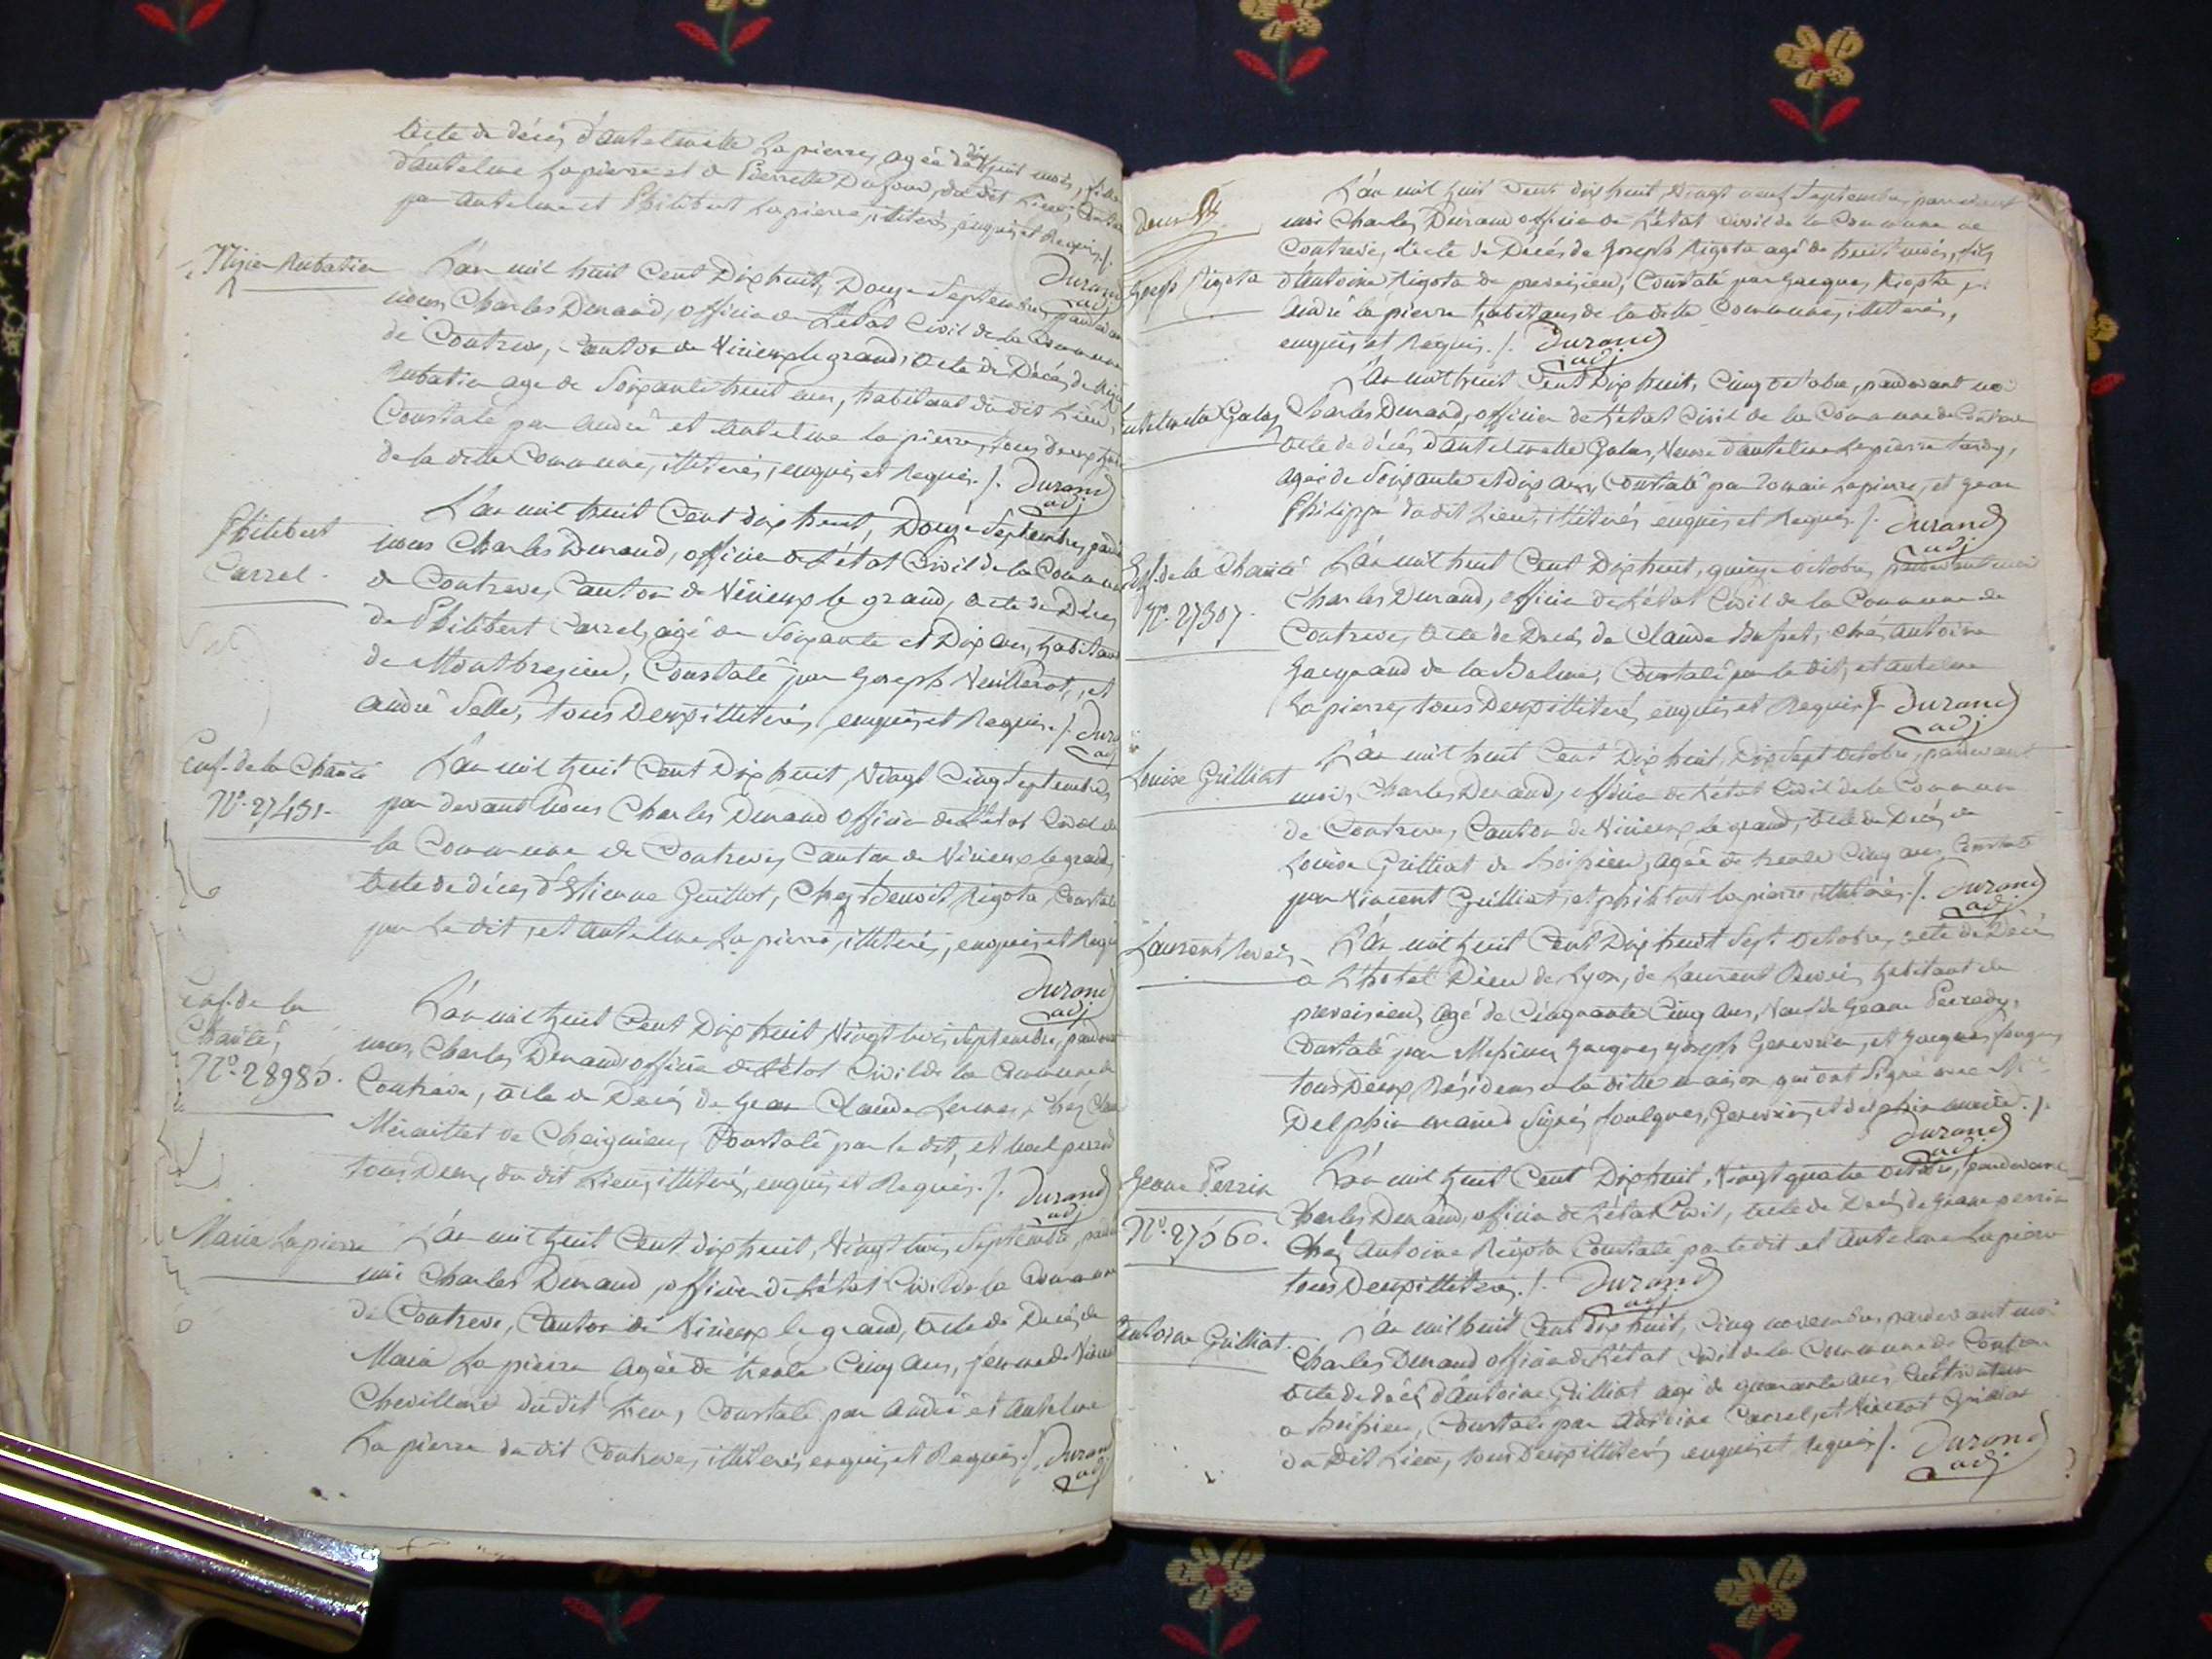 acte de décès d'antelmette Lapierre, agée de dix huit mois, fille
d'antelme Lapierre et de Pierrette Dufour, du dit Lieu,
par antelme et Philibert Lapierre, illiterés, enquis et Requis ./.
Durand
adj
Nizier Rubatier
L'an mil huit Cent Dix huit, Douze Septembre, pardevant
nous Charles Durand, officier de L'état Civil de la Commune
de Contrevoz, Canton de Virieux le grand, acte de Décés de
Rubatier agé de Soixante huit ans, habitant du dit Lieu,
Constaté par andré et antelme la pierre, tous deux
de la ditte Commune, illiterés, enquis et Requis ./. Durand
adj
Philibert
Carrel
L'an mil huit Cent dix huit, Douze Septembre,
nous Charles Durand, officier de L'état Civil de la Commune
de Contrevoz, Canton de Virieux le grand, acte de Décés
de Philibert Carrel, agé de Soixante et Dix ans, habitant
de Montbrezieu, Constaté par Joseph Vuillerot, et
andré Selle, tous Deux illiterés, enquis et Requis ./.
adj
Enf. de la Charité
N°. 27451.
L'an mil huit Cent Dix huit, Vingt Cinq Septembre,
par devant Nous Charles Durand officier de L'état Civil de
la Commune de Contrevoz, Canton de Virieux le grand,
acte de décès d'Etienne Guillot, Chez Benoit Rigota, Constaté
par Le dit, et antelme Lapierre, illiterés, enquis et Requis
Durand
adj
Enf. de la
Charité,
N°. 28985.
L'an mil huit Cent Dix huit Vingt trois Septembre, pardevant
nous, Charles Durand officier de L'état Civil de la Commune de
Contrevoz, acte de Décés de Jean Claude chés
de Cheignieu, Constaté par le dit, et
tous Deux du dit Lieu, illiterés, enquis et Requis ./. Durand
adj
Marie Lapierre
L'an mil huit Cent dix huit, Vingt trois Septembre,
moi Charles Durand, officier de L'état Civil de la Commune
de Contrevoz, Canton de Virieux le grand, acte de Décés de
Marie Lapierre agée de trente Cinq ans, femme de
Chevillard du dit Lieu, Constaté par andré et antelme
Lapierre du dit Contrevoz, illiterés enquis et Requis ./. Durand
adj
Joseph Rigota
L'an mil huit Cent dix huit, Vingt neuf Septembre, pardevant
moi Charles Durand officier de L'état Civil de la Commune de
Contrevoz, acte de Décés de Joseph Rigota agé de huit mois, fils
d'antoine Rigota de preveizieu, Constaté par Jacques Rigota,
andré la pierre habitans de la ditte Commune, illiterés,
enquis et Requis ./. Durand
adj
antelmette Golas
L'an mil huit Cent Dix huit, Cinq octobre, pardevant moi
Charles Durand, officier de L'état Civil de la Commune de Contrevoz
acte de décés d'antelmette Golas, Veuve d'antelme Lapierre tardy,
agée de Soixante et dix ans, Constaté par Romain Lapierre, et Jean
Philippe du dit Lieu, illiterés enquis et Requis ./. Durand
adj
Enf. de la Charité
N°. 27307.
L'an mil huit Cent Dix huit, quinze octobre, pardevant moi
Charles Durand, officier de L'état Civil de la Commune de
Contrevoz, acte de Décés de Claude Buffet, chés antoine
de la Balme, Constaté par le dit, et antelme
Lapierre, tous Deux illiterés enquis et Requis ./. Durand
adj
Louise Grilliat
L'an mil huit Cent Dix huit, Dix Sept octobre, pardevant
moi, Charles Durand, officier de L'état Civil de la Commune
de Contrevoz, Canton de Virieux le grand, acte de Décés de
Louise Grilliat de Boissieu, agée de trente Cinq ans, Constaté
par Vincent Grilliat, et philibert lapierre, illiterés ./. Durand
adj
L'an mil huit Cent Dix huit Sept octobre, acte de Décés
a L'hotel Dieu de Lyon, de Laurent habitant de
preveizieu, agé de Cinquante Cinq ans, Veuf de Jeanne
Constaté par Messieurs Jacques Joseph et Jacques
tous Deux Résidens a la ditte maison qui ont Signé avec
Durand
adj
Jeanne Perrin
N°. 27560.
L'an mil huit Cent Dix huit, Vingt quatre octobre, pardevant
Charles Durand, officier de L'état Civil, acte de Décés de Jeanne perrin
Chés Antoine Rigota Constaté par le dit et antelme Lapierre
tous Deux illiterés ./. Durand
adj
Antoine Grilliat.
L'an mil huit Cent dix huit, Cinq novembre, pardevant moi
Charles Durand officier de L'état Civil de la Commune de Contrevoz
acte de décés d'antoine Grilliat agé de quarante ans, Cultivateur
a Boissieu, Constaté par antoine Carrel, et Vincent Grilliat
du Dit Lieu, tous Deux illiterés enquis et requis ./. Durand
adj